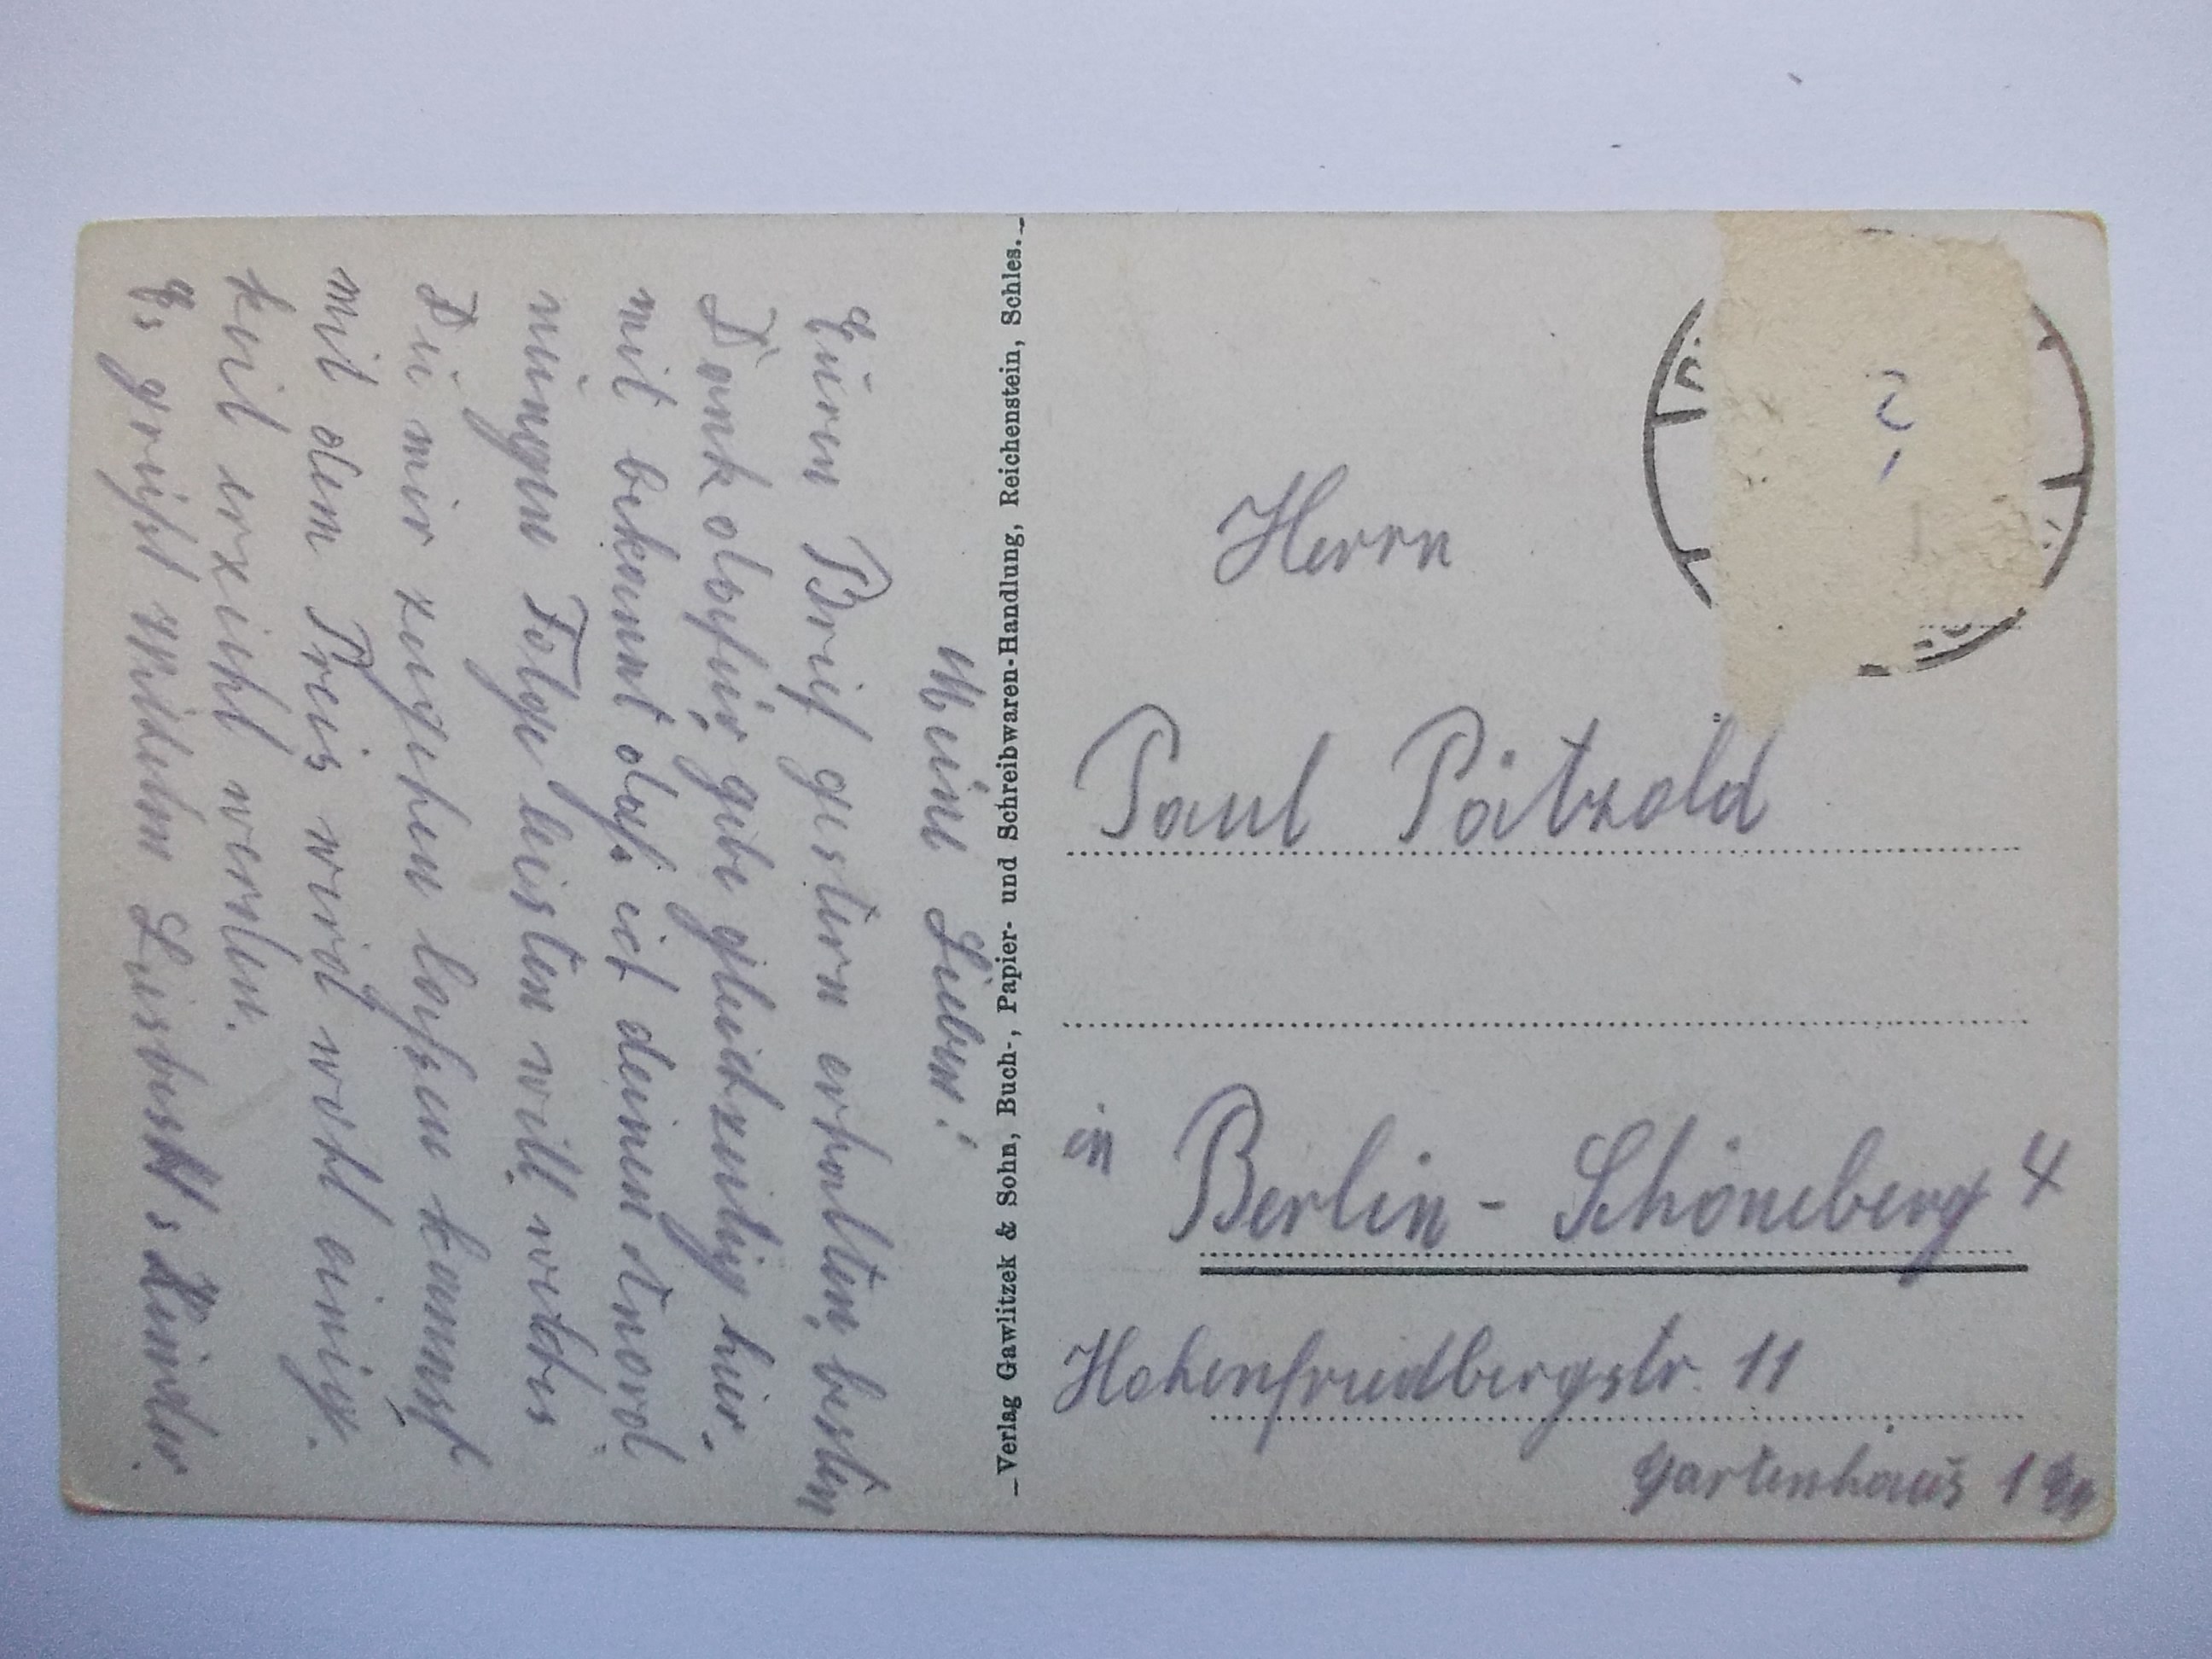 Meine Lieben!
Euren Brief gestern erhalten, besten
Dank dafür, gebe gleichzeitig hier,
mit bekannt daß ich deinen
meinungen Folge leisten will, welches
Du mir zugehen lassen kannst
mit dem Preis wird wohl einig-
keit erziehlt werden.
Es grüßt
Verlag Gawlitzek & Sohn, Buch-, Papier- und Schreibwaren-Handlung, Reichenstein, Schles.
Herrn
Paul Pätzold
in Berlin - Schöneberg 4
Hohenfriedbergstr. 11
Gartenhaus 1